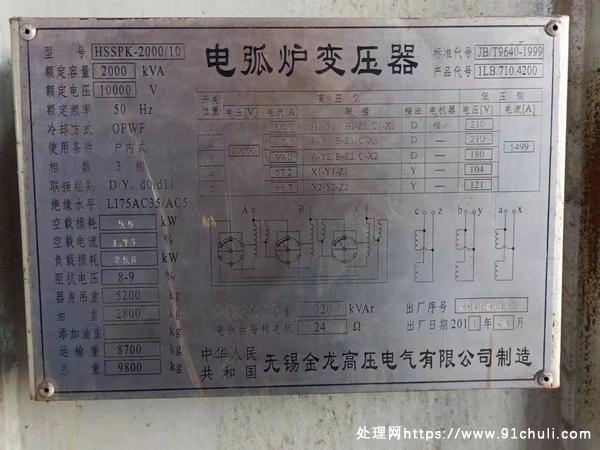 电弧炉变压器
型号 HSSPK-2000/10
标准代号 JB/T9640-1999
产品代号 1LB.710.4200
额定容量 2000 kVA
额定电压 10000 V
额定频率 50 Hz
冷却方式 OFWF
使用条件 户内式
相数 3相
联接组别 D/Y, d0,d11
绝缘水平 LI75AC35/AC5
空载损耗 5.5 kW
空载电流 %
负载损耗 kW
阻抗电压 8-9 %
器身吊重 5200 kg
油重 2800 kg
添加油重 kg
运输重 8700 kg
总重 9800 kg
开关位置 高压侧 低压侧
电压[V] 电流[A] 联接 接法 电抗器 电压[V] 电流[A]
1 10000 D 接入 210 5499
2 D — 210
3 99.0 A-Y2, B-Z2 C-X2 D — 180
4 57.2 X1-Y1-Z1 Y — 104
5 66.7 X2-Y2-Z2 Y — 121
A B C
c z b y a x
320 kVAr
电抗器每相电抗 24 Ω
出厂序号
出厂日期 201 年 月
中华人民共和国 无锡金龙高压电气有限公司制造
处理网https://www.91chuli.com/